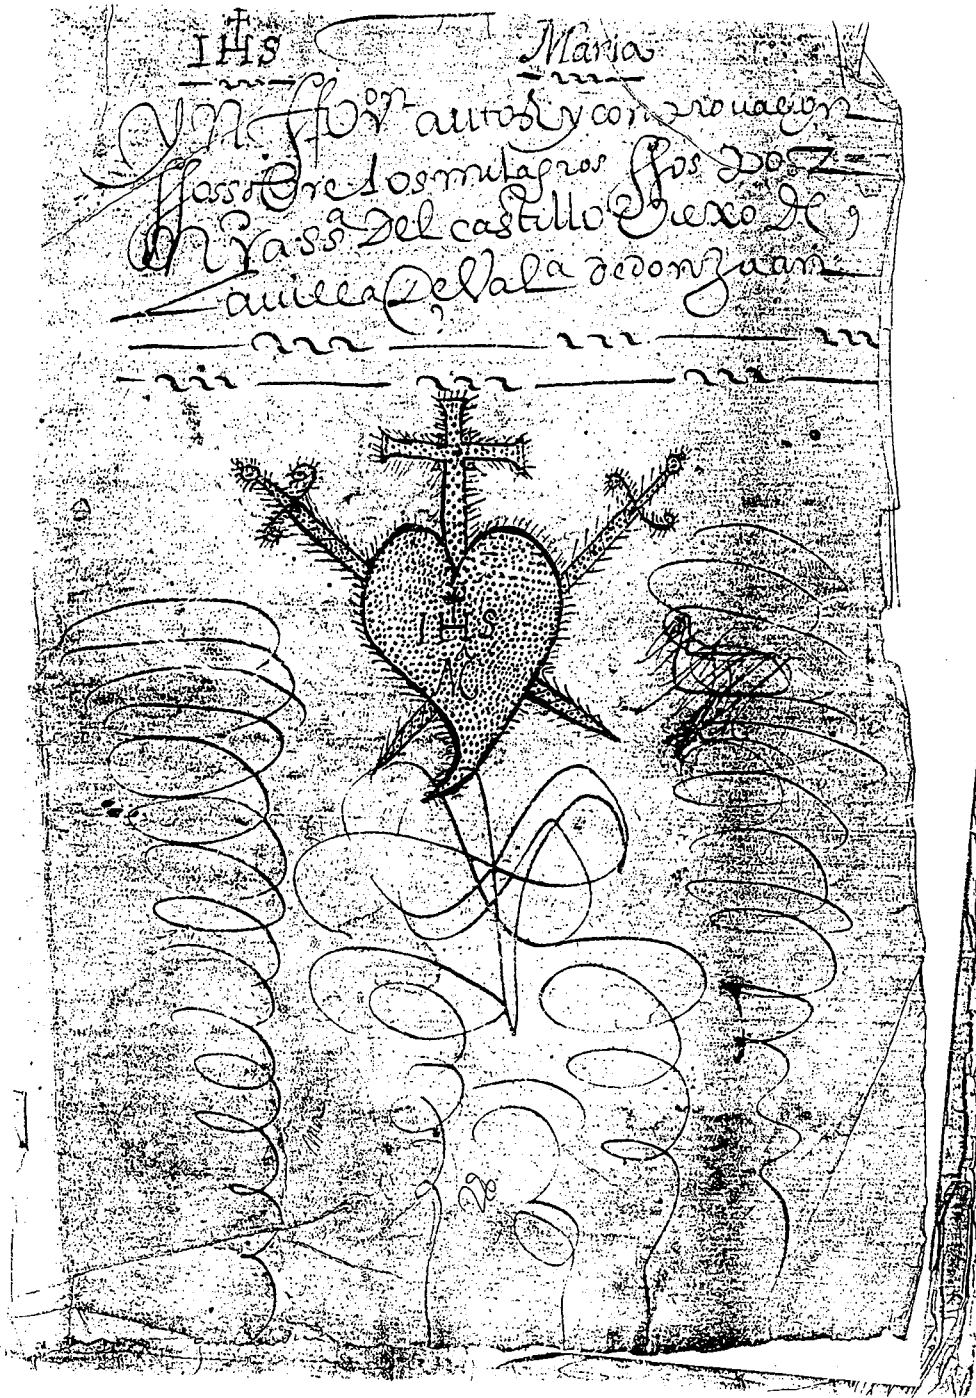 IHS Maria
Ynfforon autos y conprouacion
ffos sobre los milagros ffos Por
nrã ssª Del castillo Viexo De
La uilla De Valª de don Juan
IHS